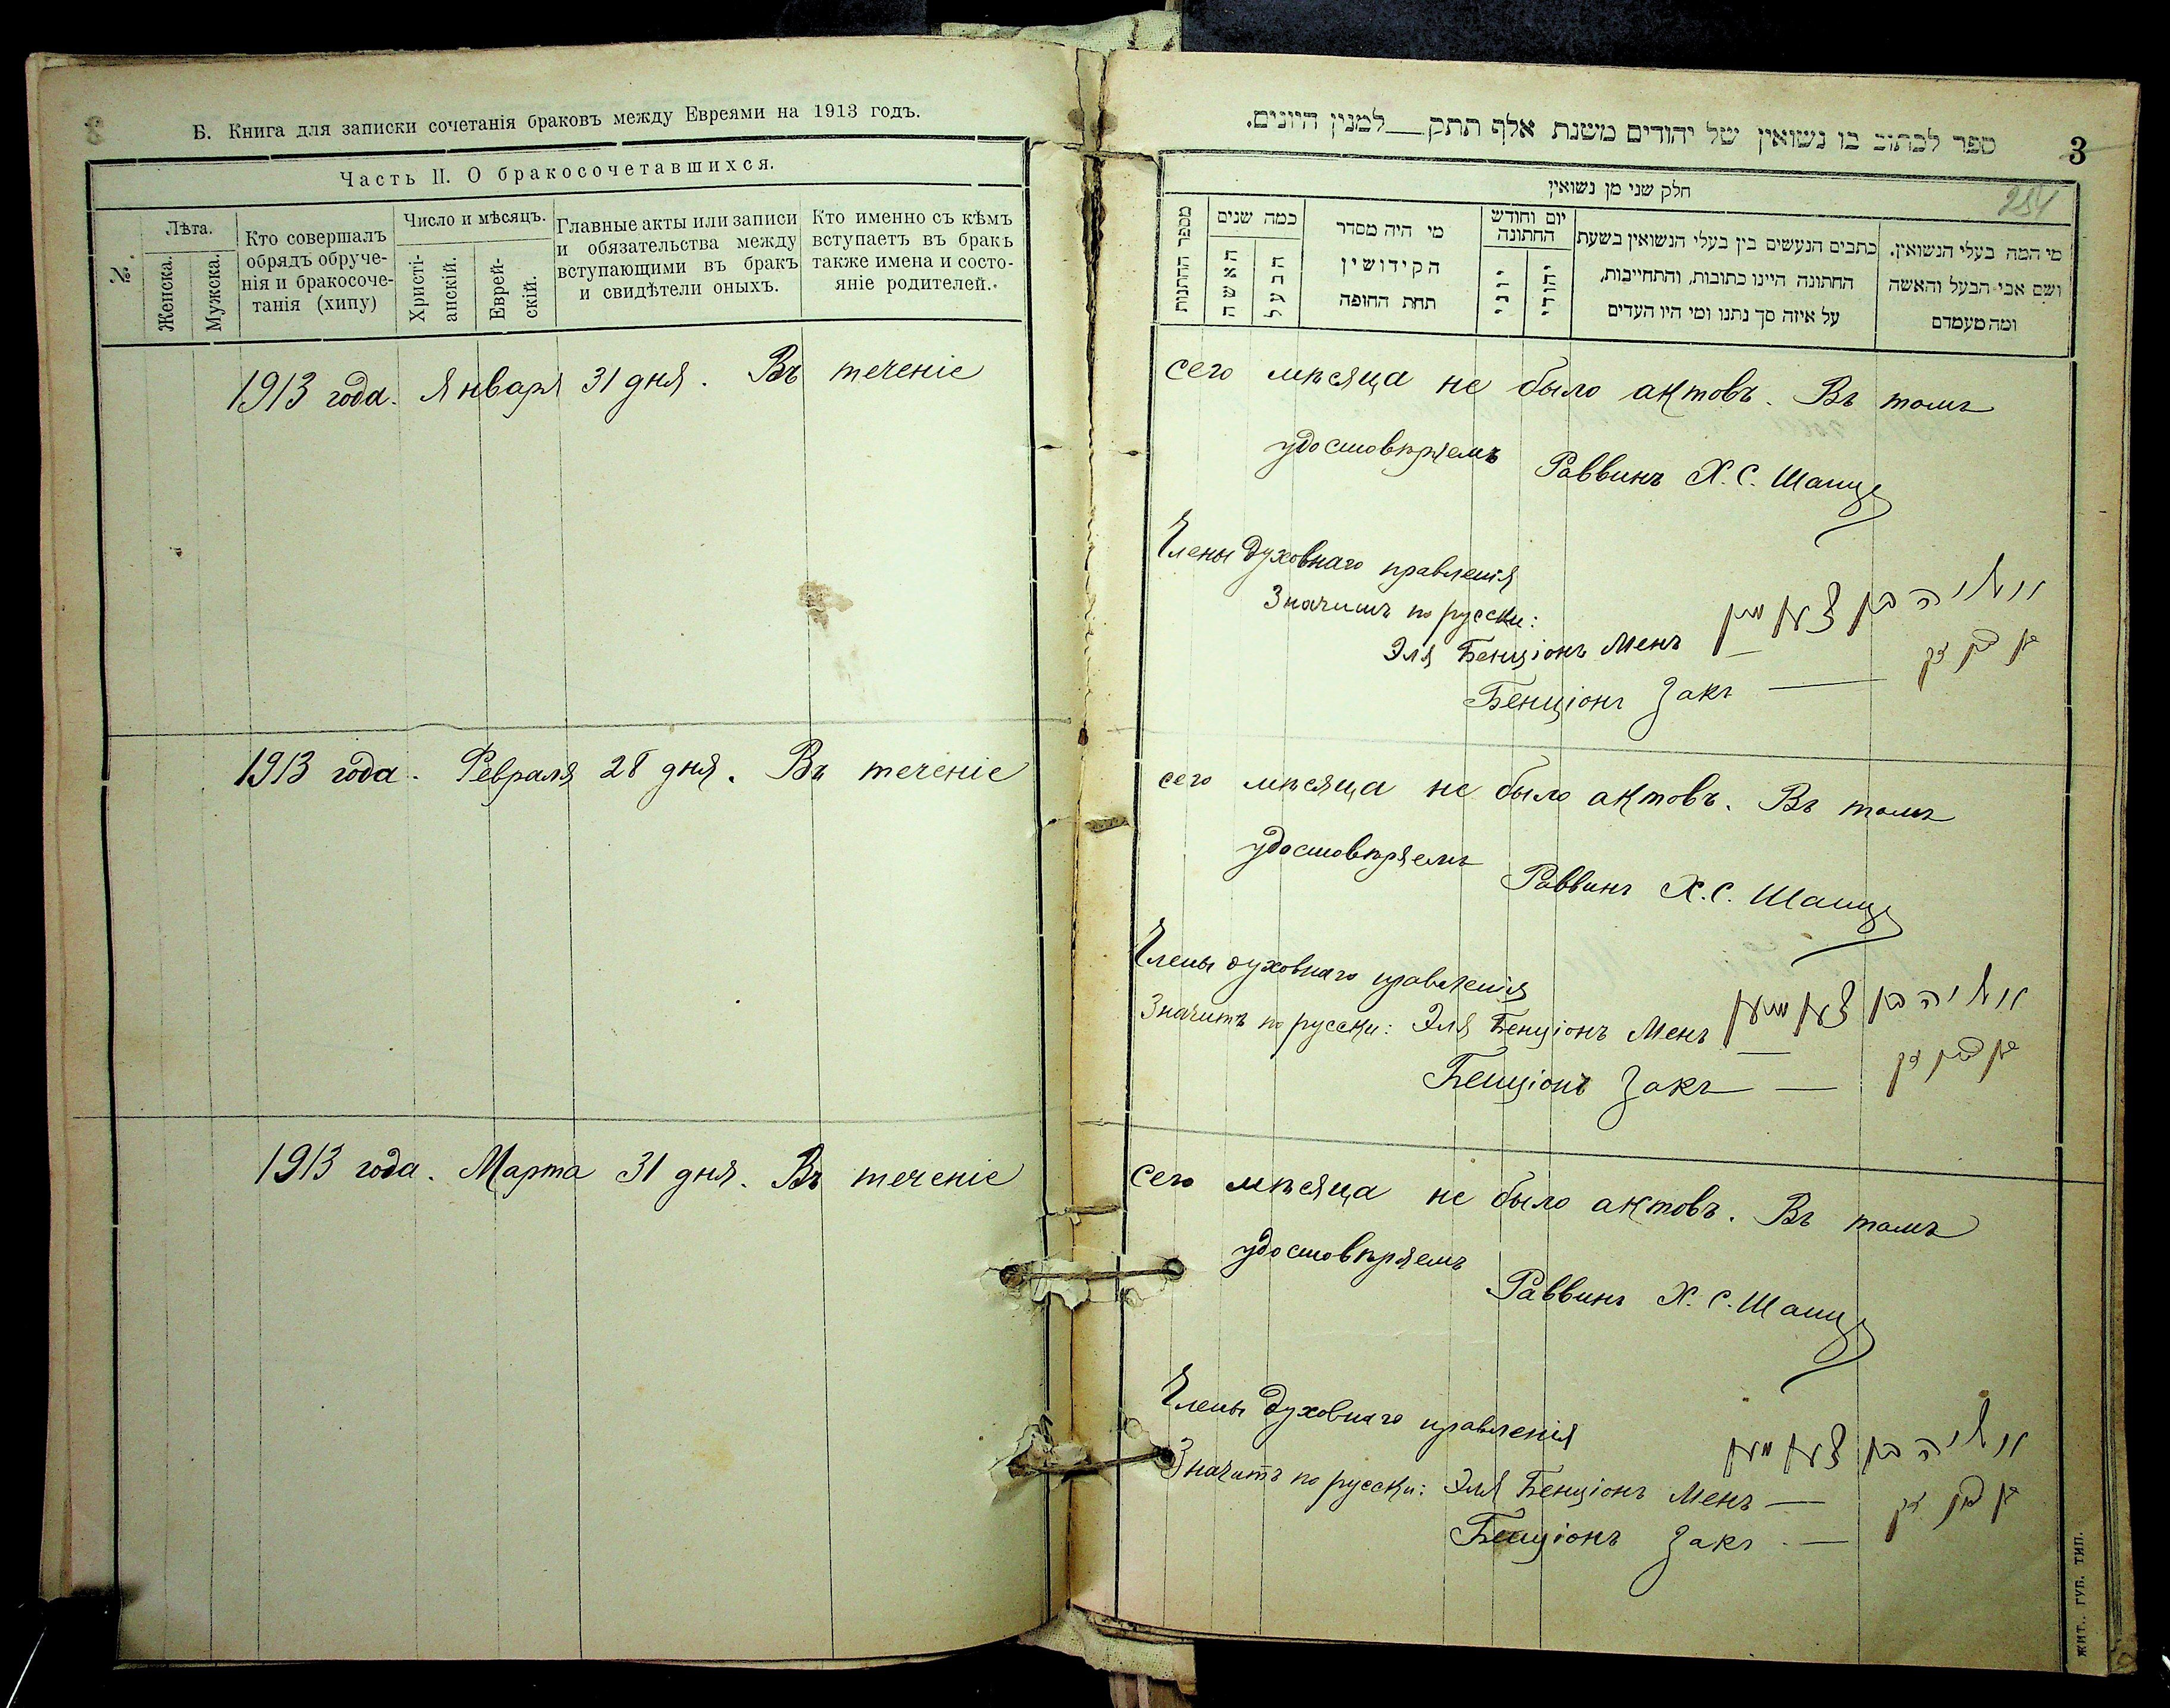 Б. Книга для записки сочетанія браковъ между Евреями на 1913 годъ.
Часть II. О бракосочетавшихся.
№.
Лѣта.
Женска.
Мужска.
Кто совершалъ
обрядъ обруче-
нія и бракосоче-
танія (хипу)
Число и мѣсяцъ.
Христі-
анскій.
Еврей-
скій.
Главные акты или записи
и обязательства между
вступающими въ бракъ
и свидѣтели оныхъ.
Кто именно съ кѣмъ
вступаетъ въ бракъ
также имена и состо-
яніе родителей.
1913 года. Января 31 дня. Въ теченіе
1913 года. Февраля 28 дня. Въ теченіе
1913 года. Марта 31 дня. Въ теченіе
ספר לכתוב בו נשואין של יהודים משנת אלף תתק__למנין היונים.
3
254
חלק שני מן נשואין
מספר החתונות
כמה שנים
האשה
הבעל
מי היה מסדר
הקידושין
תחת החופה
יום וחודש
החתונה
יוני
יהודי
כתבים הנעשים בין בעלי הנשואין בשעת
החתונה היינו כתובות, והתחייבות,
על איזה סך נתנו ומי היו העדים
מי המה בעלי הנשואין.
ושם אבי הבעל והאשה
ומה מעמדם
сего мѣсяца не было актовъ. Въ томъ
удостовѣряемъ
Раввинъ Х. С.
Члены духовнаго правленія
Значитъ по русски:
Эля Бенціонъ Менъ
Бенціонъ Закъ
сего мѣсяца не было актовъ. Въ томъ
удостовѣряемъ
Раввинъ Х. С.
Члены духовнаго правленія
Значитъ по русски: Эля Бенціонъ Менъ
Бенціонъ Закъ
сего мѣсяца не было актовъ. Въ томъ
удостовѣряемъ
Раввинъ Х. С.
Члены духовнаго правленія
Значитъ по русски: Эля Бенціонъ Менъ
Бенціонъ Закъ
ЖИТ. ГУБ. ТИП.